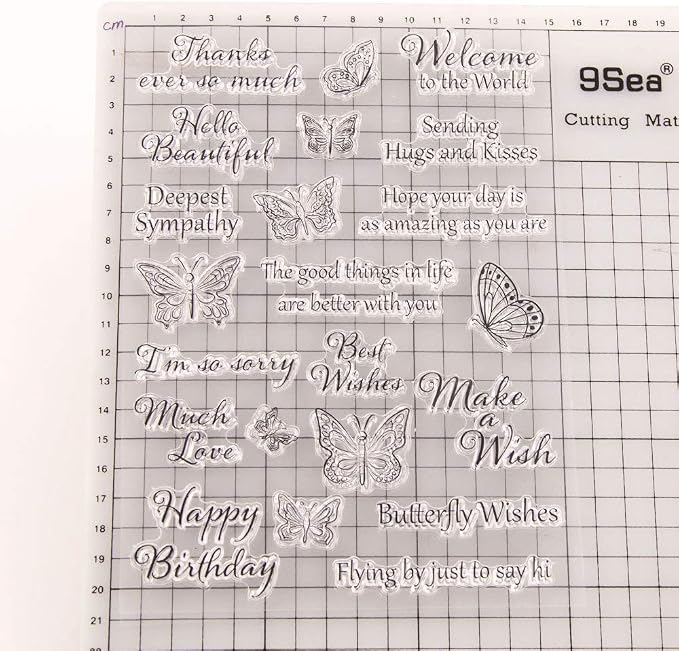 cm 1 2 3 4 5 6 7 8 9 10 11 12 13 14 15 16 17 18 19
1
2
3
4
5
6
7
8
9
10
11
12
13
14
15
16
17
18
19
20
Thanks
ever so much
Welcome
to the World
9Sea®
Cutting Mat
Hello
Beautiful
Sending
Hugs and Kisses
Deepest
Sympathy
Hope your day is
as amazing as you are
The good things in life
are better with you
I'm so sorry
Best
Wishes
Make
a
Wish
Much
Love
Happy
Birthday
Butterfly Wishes
Flying by just to say hi